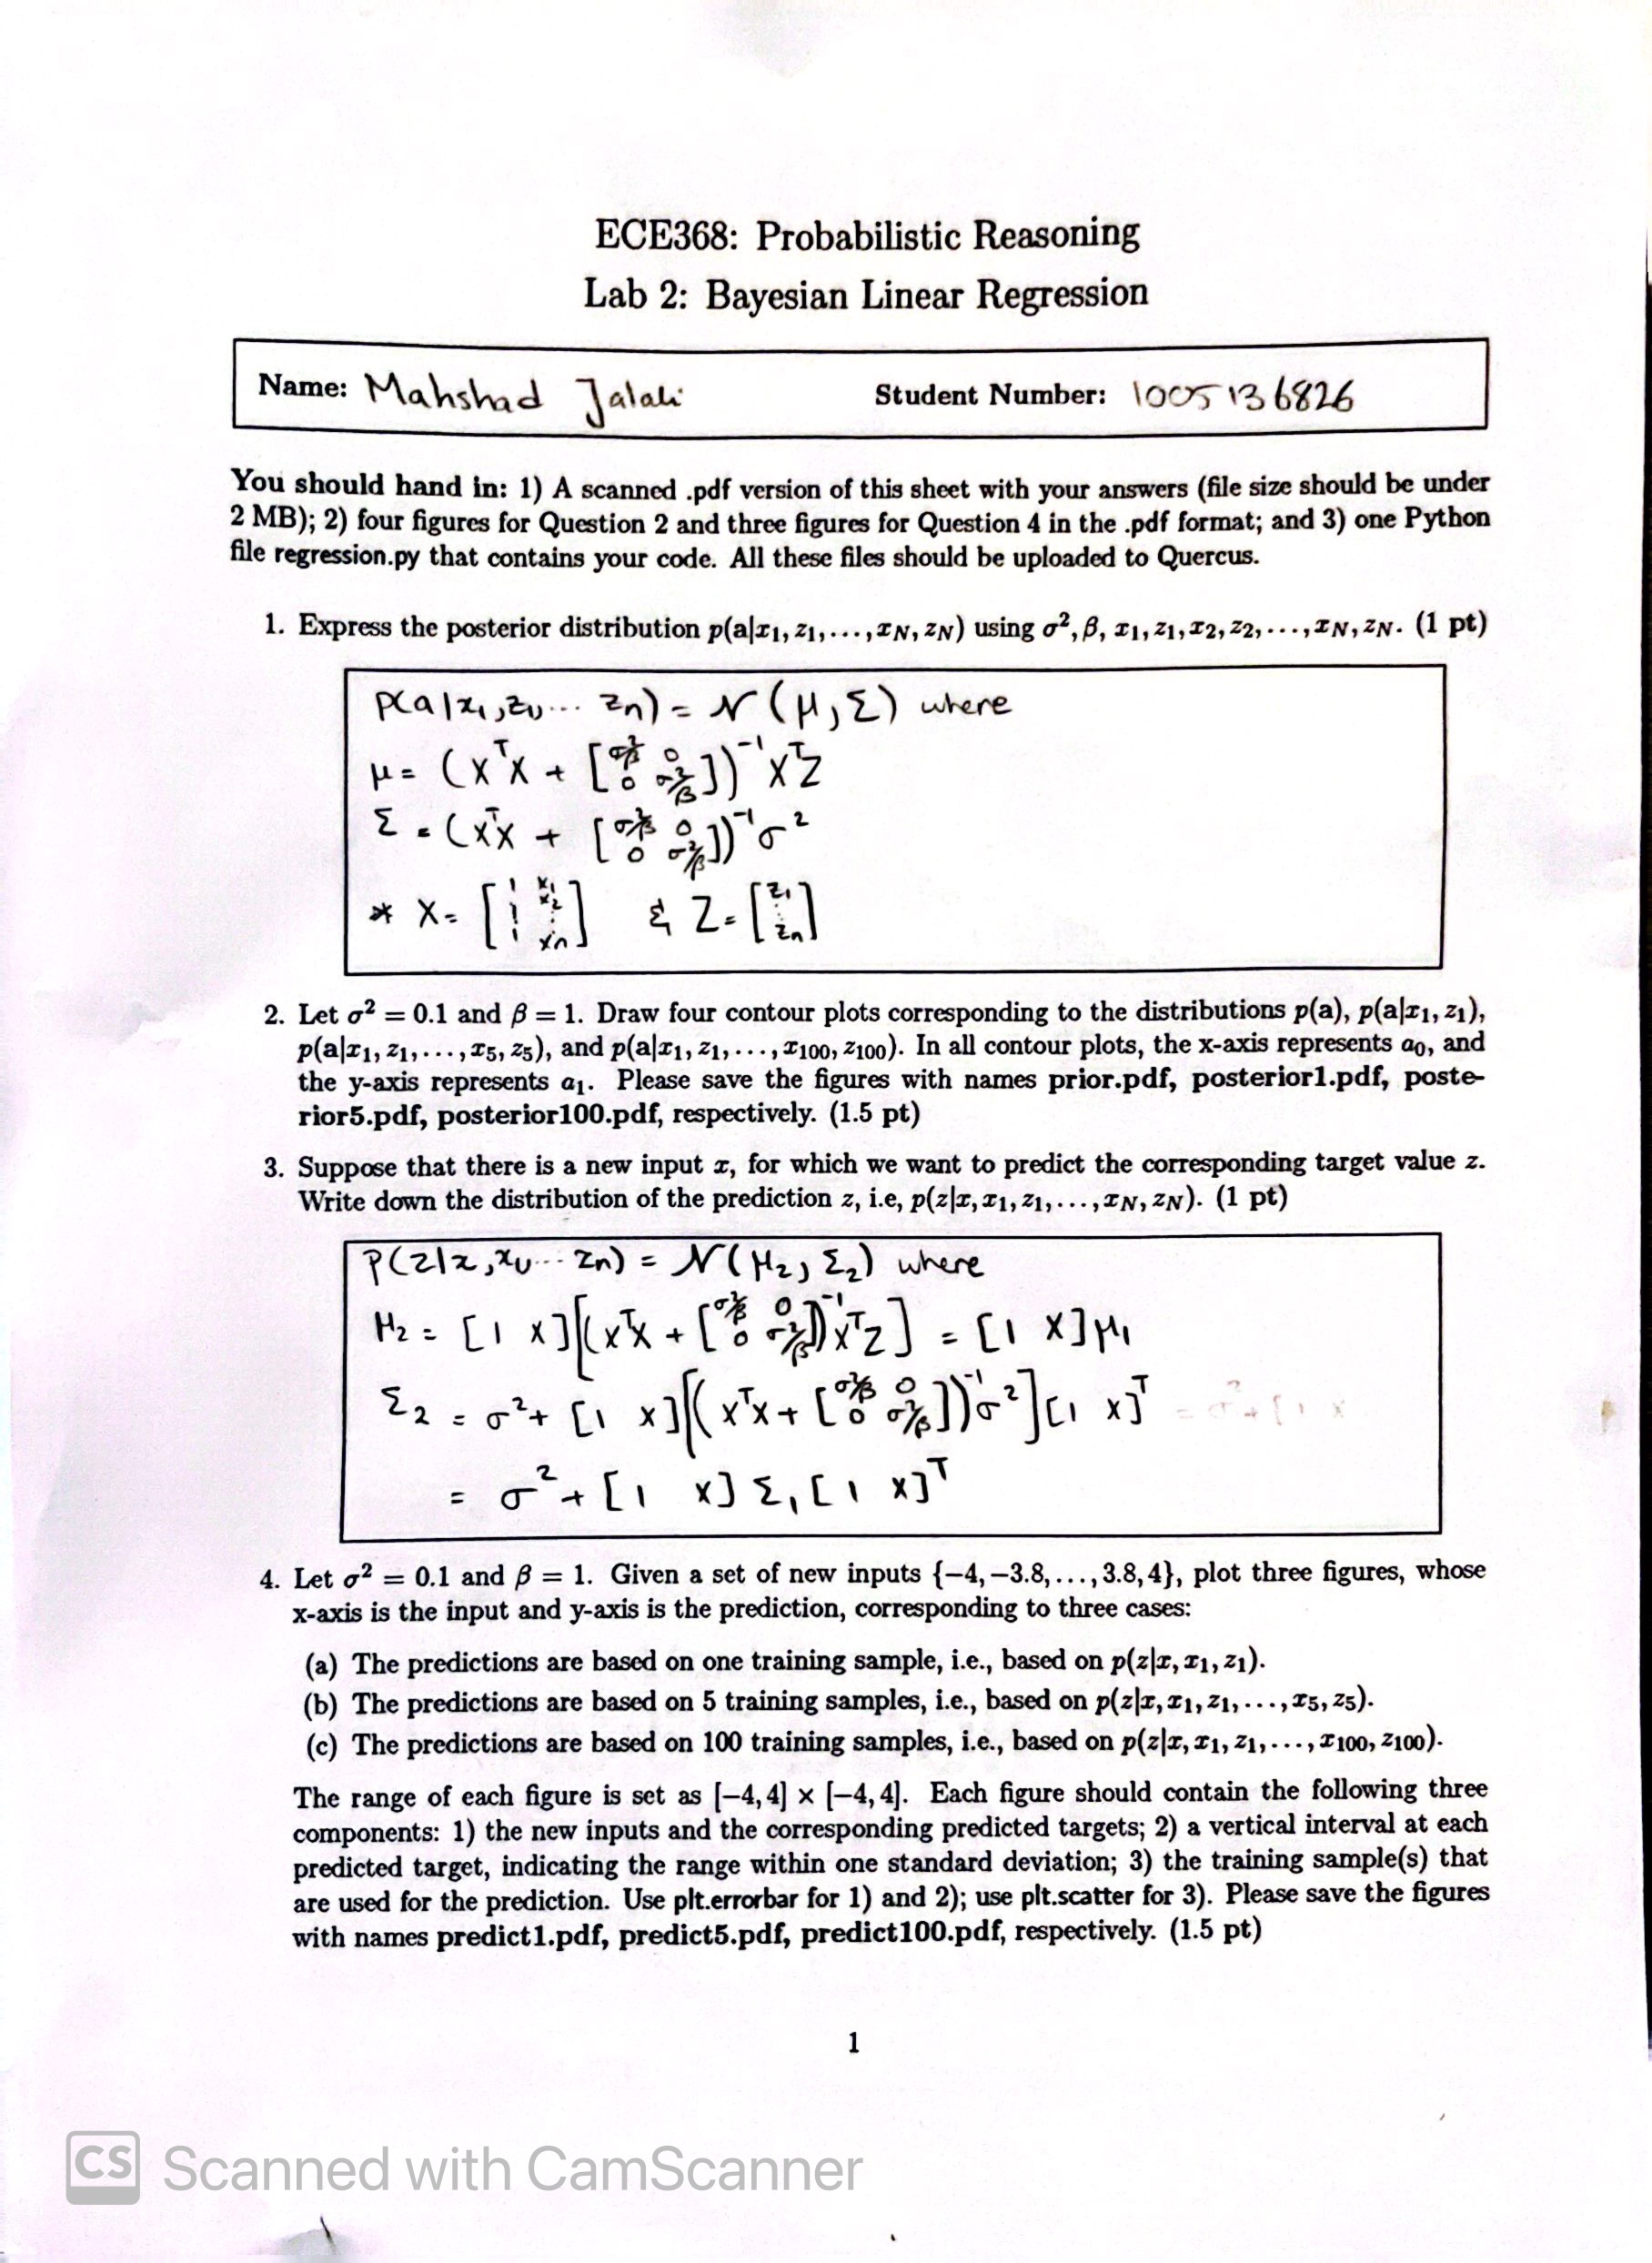 ECE368: Probabilistic Reasoning
Lab 2: Bayesian Linear Regression
Name: Mahshad Jalali Student Number: 1005136826
You should hand in: 1) A scanned .pdf version of this sheet with your answers (file size should be under
2 MB); 2) four figures for Question 2 and three figures for Question 4 in the .pdf format; and 3) one Python
file regression.py that contains your code. All these files should be uploaded to Quercus.
1. Express the posterior distribution p(a|x₁, z₁, . . . , x_N, z_N) using σ², β, x₁, z₁, x₂, z₂, . . . , x_N, z_N. (1 pt)
P(a|x₁, z₁, ... zn) = N(μ, Σ) where
μ = (XᵀX + [σ²/β 0; 0 σ²/β])⁻¹ XᵀZ
Σ = (XᵀX + [σ²/β 0; 0 σ²/β])⁻¹ σ²
* X = [1 x₁; 1 x₂; ⋮ ⋮; 1 xn] & Z = [z₁; ⋮; zn]
2. Let σ² = 0.1 and β = 1. Draw four contour plots corresponding to the distributions p(a), p(a|x₁, z₁),
p(a|x₁, z₁, . . . , x₅, z₅), and p(a|x₁, z₁, . . . , x₁₀₀, z₁₀₀). In all contour plots, the x-axis represents a₀, and
the y-axis represents a₁. Please save the figures with names prior.pdf, posterior1.pdf, poste-
rior5.pdf, posterior100.pdf, respectively. (1.5 pt)
3. Suppose that there is a new input x, for which we want to predict the corresponding target value z.
Write down the distribution of the prediction z, i.e, p(z|x, x₁, z₁, . . . , x_N, z_N). (1 pt)
P(z|x, x₁, ... zn) = N(μ₂, Σ₂) where
μ₂ = [1 x][(XᵀX + [σ²/β 0; 0 σ²/β])⁻¹ XᵀZ] = [1 x]μ₁
Σ₂ = σ² + [1 x][(XᵀX + [σ²/β 0; 0 σ²/β])⁻¹ σ²][1 x]ᵀ
= σ² + [1 x] Σ₁ [1 x]ᵀ
4. Let σ² = 0.1 and β = 1. Given a set of new inputs {−4, −3.8, . . . , 3.8, 4}, plot three figures, whose
x-axis is the input and y-axis is the prediction, corresponding to three cases:
(a) The predictions are based on one training sample, i.e., based on p(z|x, x₁, z₁).
(b) The predictions are based on 5 training samples, i.e., based on p(z|x, x₁, z₁, . . . , x₅, z₅).
(c) The predictions are based on 100 training samples, i.e., based on p(z|x, x₁, z₁, . . . , x₁₀₀, z₁₀₀).
The range of each figure is set as [−4, 4] × [−4, 4]. Each figure should contain the following three
components: 1) the new inputs and the corresponding predicted targets; 2) a vertical interval at each
predicted target, indicating the range within one standard deviation; 3) the training sample(s) that
are used for the prediction. Use plt.errorbar for 1) and 2); use plt.scatter for 3). Please save the figures
with names predict1.pdf, predict5.pdf, predict100.pdf, respectively. (1.5 pt)
1
CS Scanned with CamScanner